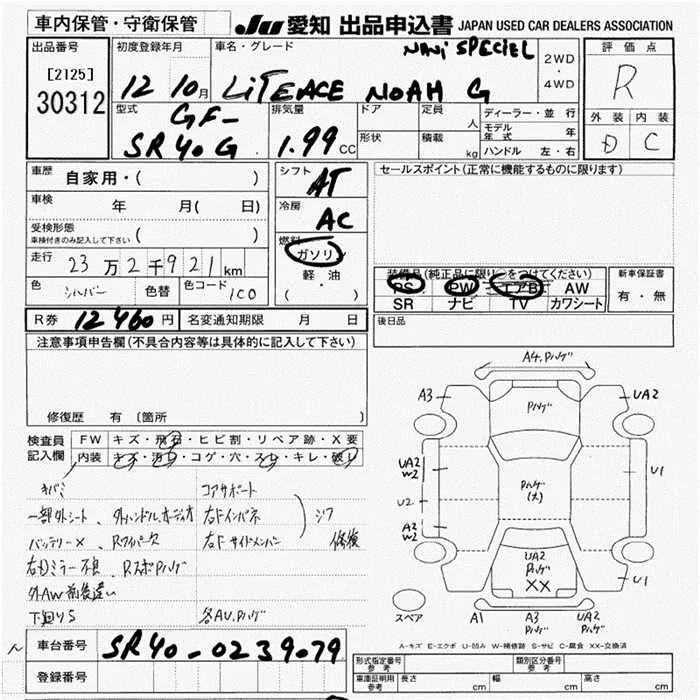 車内保管・守衛保管 JU 愛知 出品申込書 JAPAN USED CAR DEALERS ASSOCIATION
出品番号 初度登録年月 車名・グレード NAVI SPECIEL 2WD ・ 4WD 評価点
[2125]
30312 12 10月 LiTEACE NOAH G R
型式 排気量 ドア 定員 人 ディーラー・並行 外装 内装
GF-
SR40G 1.99CC 形状 積載 kg モデル年式 年 D C
ハンドル 左・右
車歴 自家用・( ) シフト AT セールスポイント(正常に機能するものに限ります)
車検 年 月(日) 冷房 AC
受検形態
車検付きのみ記入して下さい ( ) 燃料 ガソリン
走行 23万2千921km 軽・油 装備品(純正品に限り○をつけてください) 新車保証書
色 シルバー 色替 色コード 1C0 ( ) PS PW エアB AW 有・無
SR ナビ TV カワシート
R券 12460円 名変通知期限 月 日 後日品
注意事項申告欄(不具合内容等は具体的に記入して下さい)
修復歴 有 〔箇所
検査員 FW キズ・飛石・ヒビ割・リペア跡・X要
記入欄 内装 キズ・汚れ・コゲ・穴・スレ・キレ・破レ
キバミ コアサポート
一部外シート、外ハンドル、オーディオ 右Fインパネ
バッテリー× Rワイパー欠 右Fサイドメンバー 修復
右Dミラー不良 RスポPハゲ
外AW前後違い
下廻りS 各AU.Pハゲ
A4.Pハゲ
A3 Pハゲ UA2
UA2 W2 Pハゲ(大) U1
U2
A2 W2 UA2 Pハゲ XX U1
スペア A1 A3 Pハゲ UA2
A-キズ E-エクボ U-凹み W-補修跡 S-サビ C-腐食 XX-交換済
車台番号 SR40-0239079
登録番号
形式指定番号 参考 類別区分番号 参考
車庫証明用 参考 長さ cm 幅 cm 高さ cm